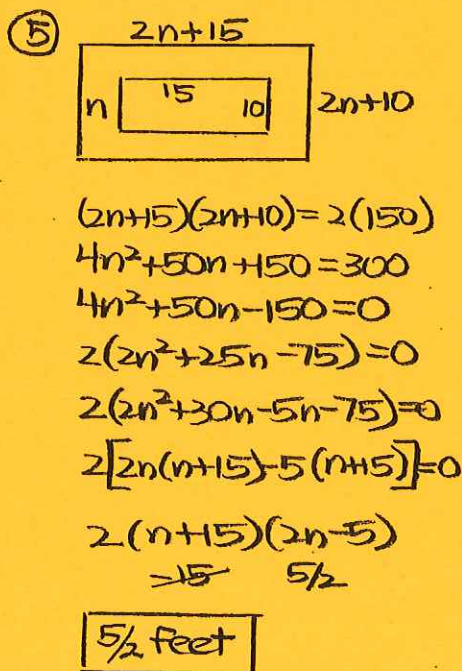 ⑤ 2n+15
n 15 10 2n+10
(2n+15)(2n+10)=2(150)
4n²+50n+150=300
4n²+50n-150=0
2(2n²+25n-75)=0
2(2n²+30n-5n-75)=0
2[2n(n+15)-5(n+15)]=0
2(n+15)(2n-5)
-15 5/2
5/2 feet